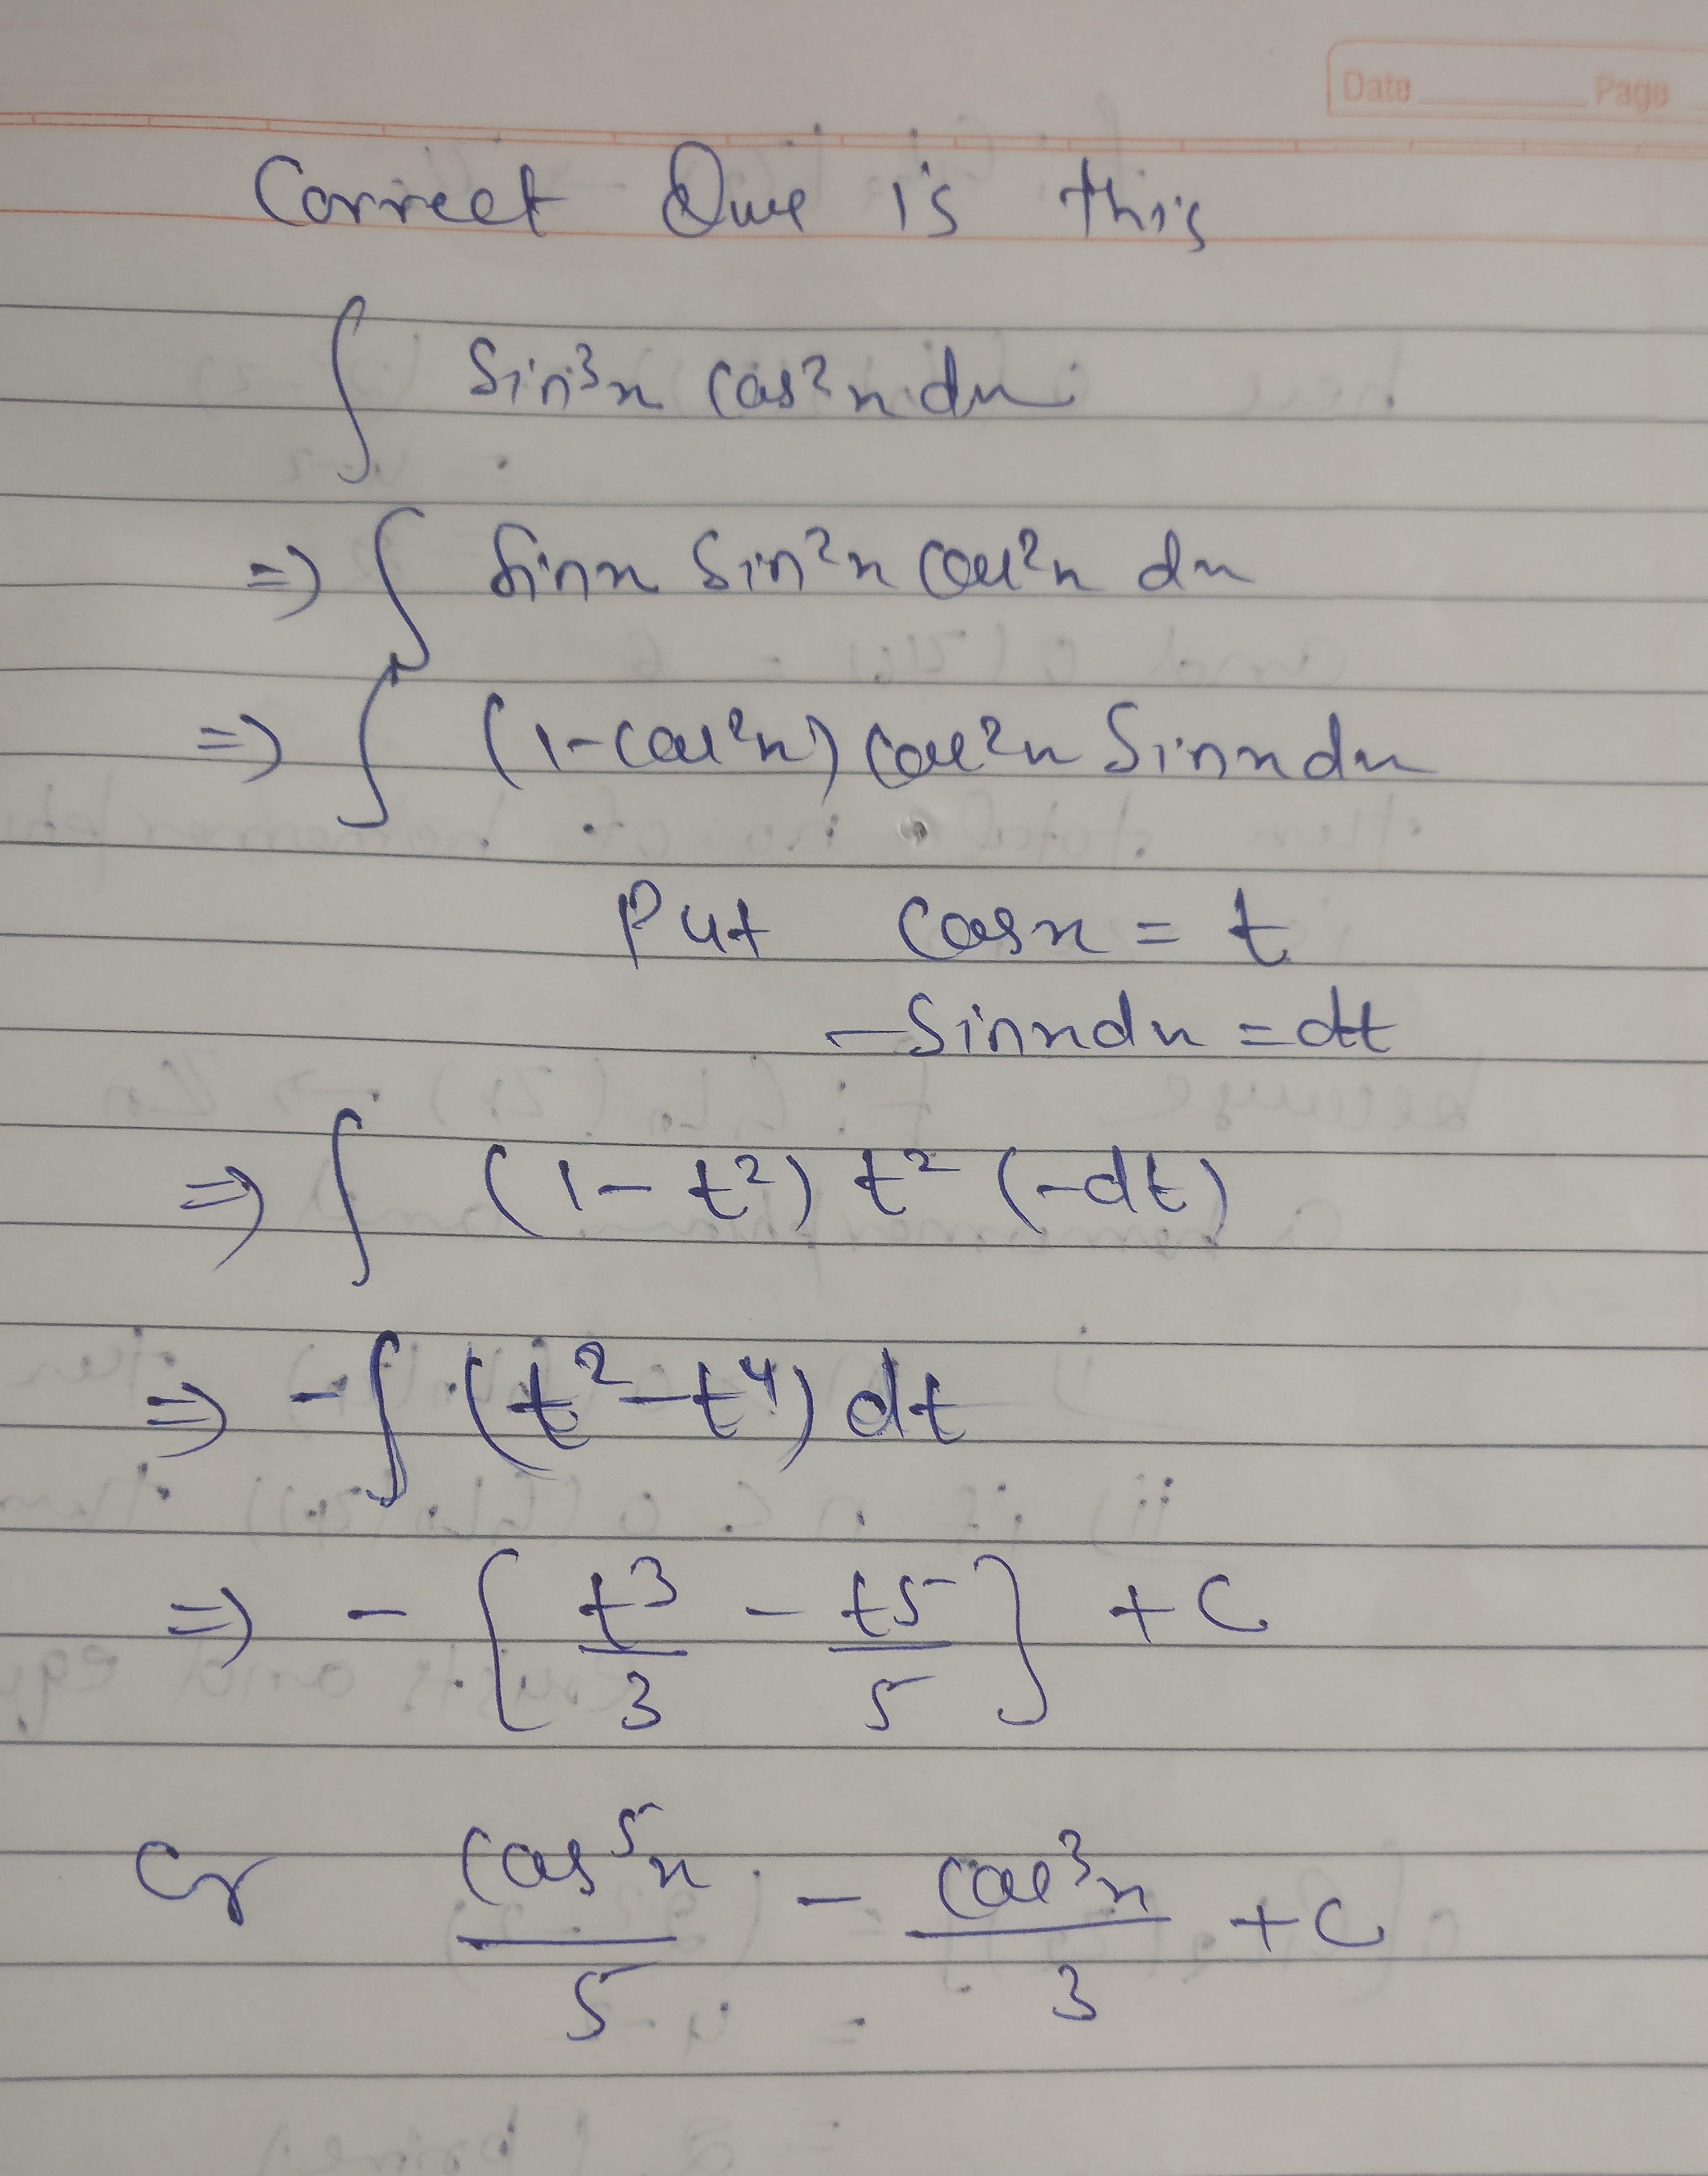 Date Page
Correct Que is this
∫ Sin³x cos²x dx
=> ∫ Sinx Sin²x cos²x dx
=> ∫ (1-cos²x) cos²x Sinx dx
Put cosx = t
-Sinx dx = dt
=> ∫ (1-t²) t² (-dt)
=> -∫ (t²-t⁴) dt
=> - [t³/3 - t⁵/5] + C
Or cos⁵x/5 - cos³x/3 + C